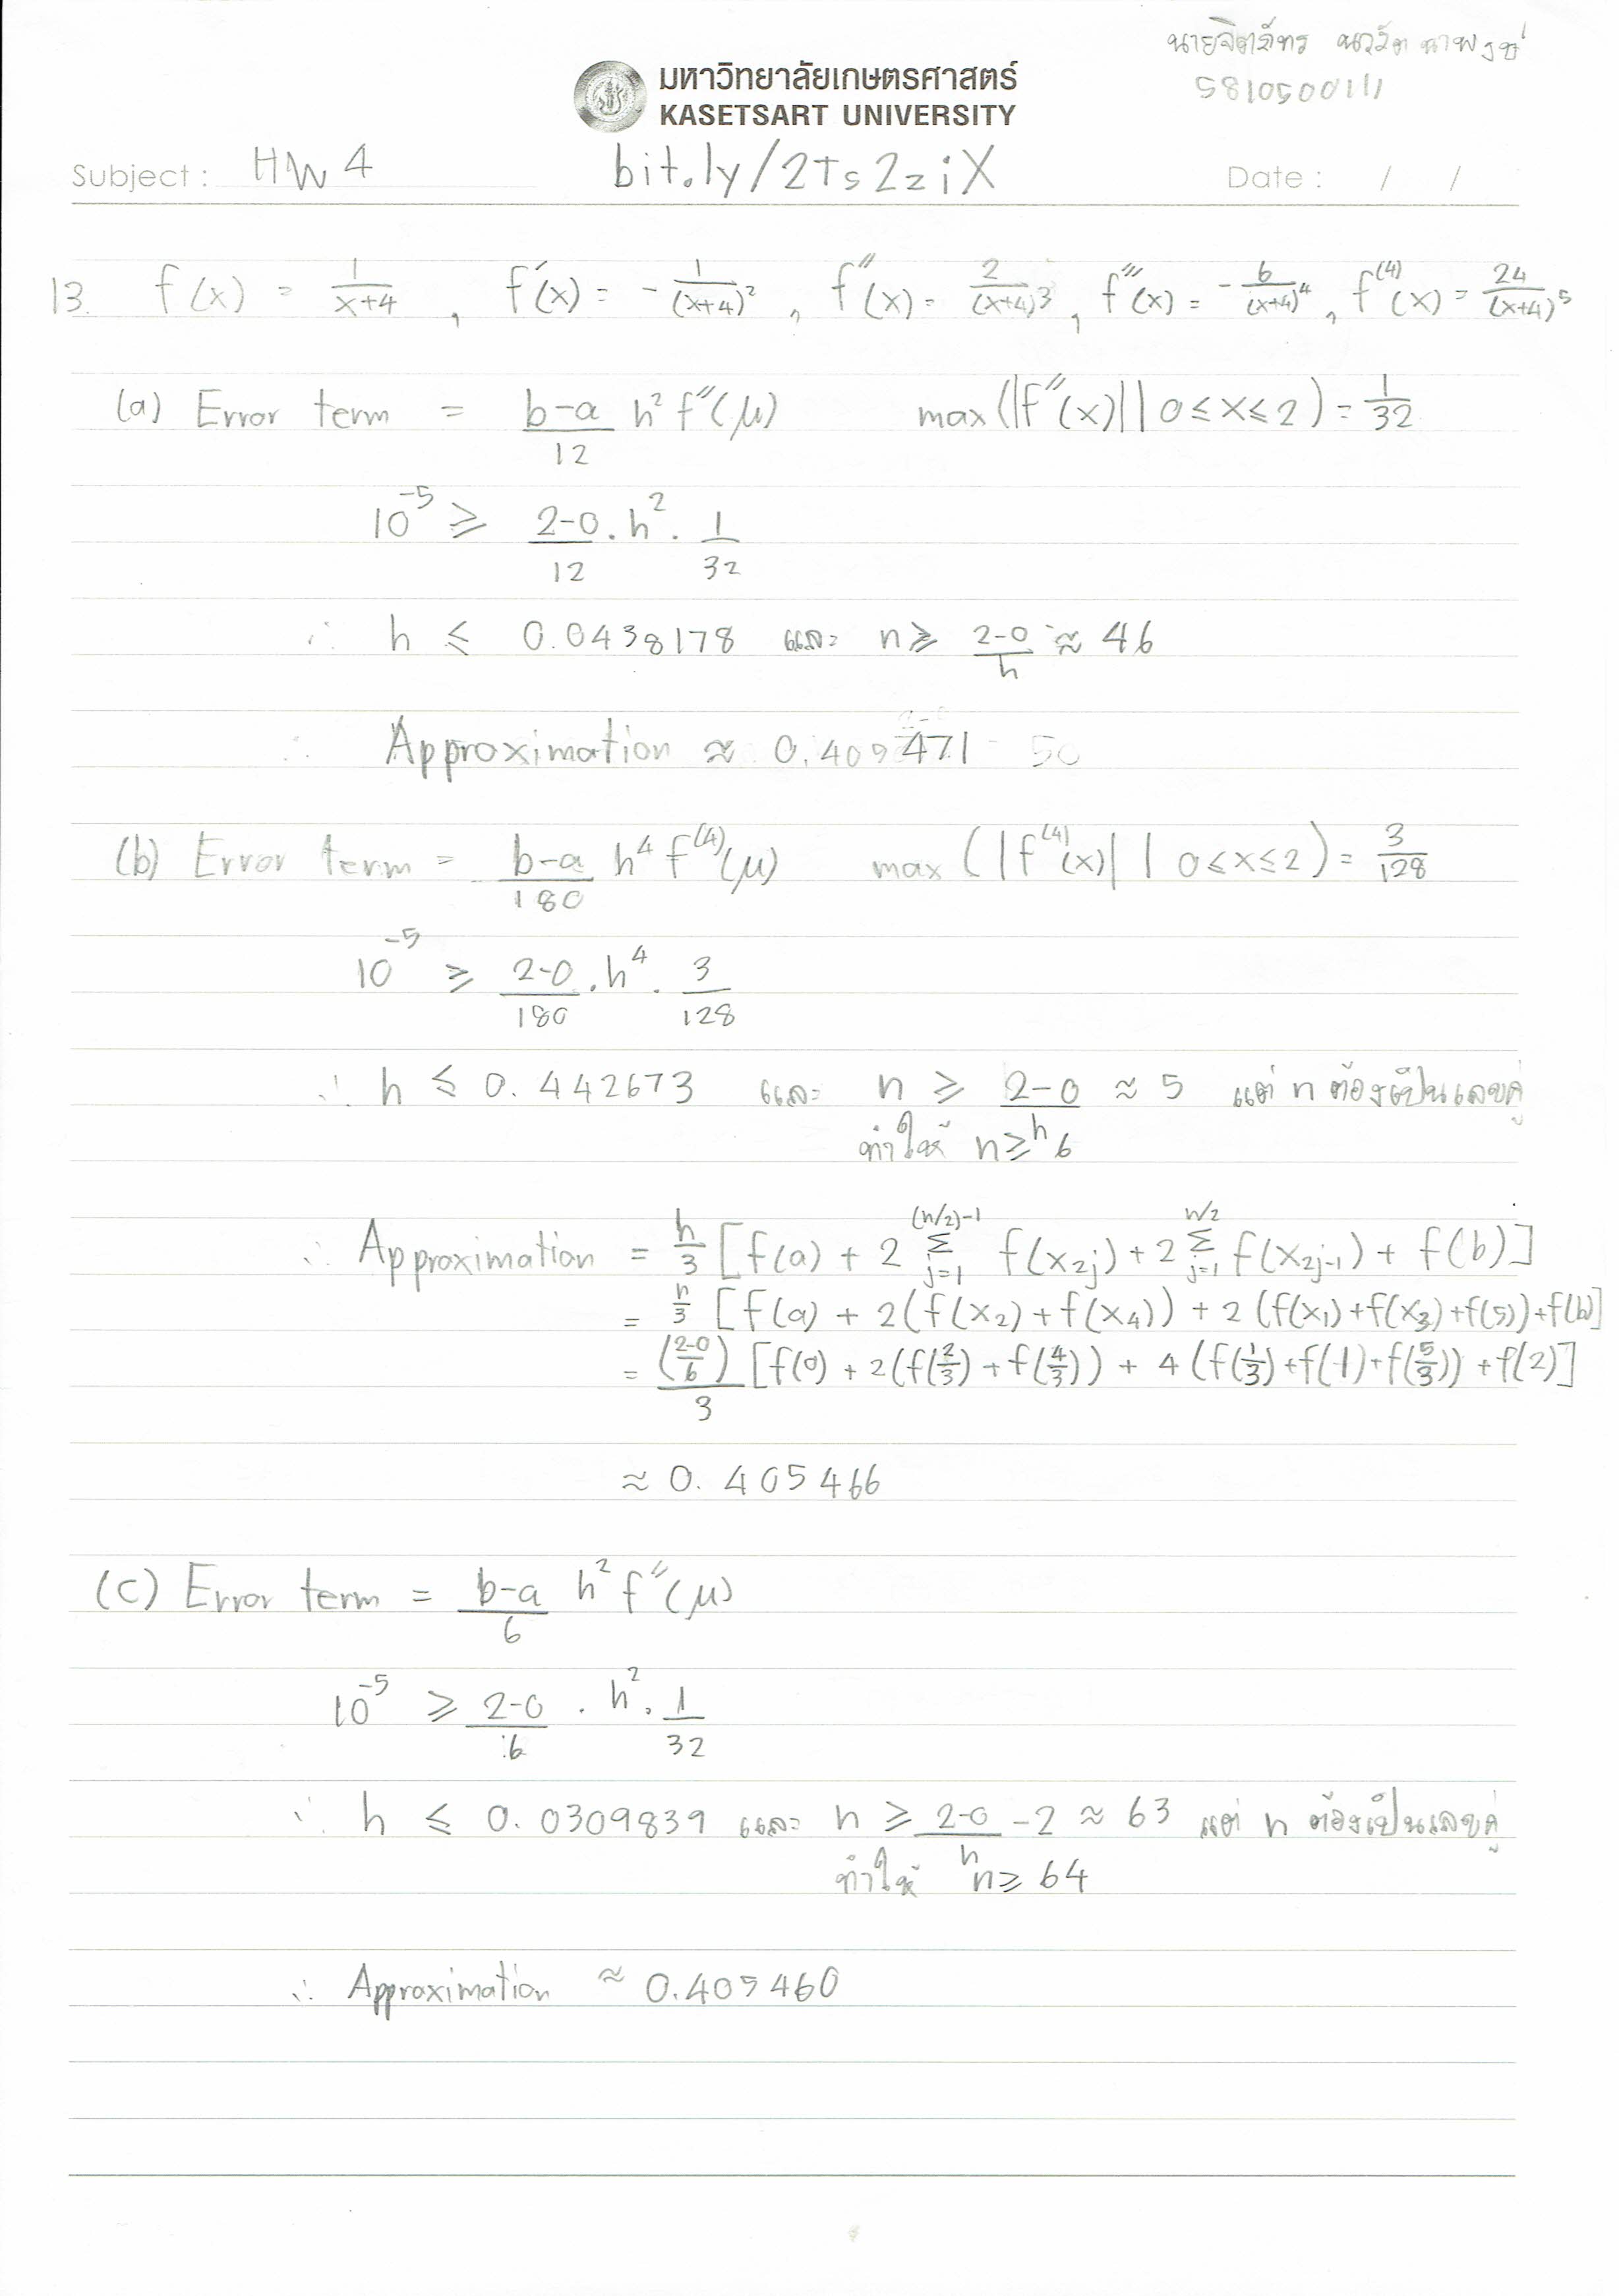 นายจิตภัทร
มหาวิทยาลัยเกษตรศาสตร์
5810500111
KASETSART UNIVERSITY
Subject : HW 4 bit.ly/2Ts2ziX Date : / /
13. f(x) = 1/(x+4) , f′(x) = - 1/(x+4)² , f″(x) = 2/(x+4)³ , f‴(x) = - 6/(x+4)⁴ , f⁽⁴⁾(x) = 24/(x+4)⁵
(a) Error term = (b-a)/12 h² f″(μ) max(|f″(x)| | 0 ≤ x ≤ 2) = 1/32
10⁻⁵ ≥ (2-0)/12 . h² . 1/32
∴ h ≤ 0.0438178 และ n ≥ (2-0)/h ≈ 46
∴ Approximation ≈ 0.405471
(b) Error term = (b-a)/180 h⁴ f⁽⁴⁾(μ) max(|f⁽⁴⁾(x)| | 0 ≤ x ≤ 2) = 3/128
10⁻⁵ ≥ (2-0)/180 . h⁴ . 3/128
∴ h ≤ 0.442673 และ n ≥ (2-0)/h ≈ 5 แต่ n ต้องเป็นเลขคู่
ทำให้ n ≥ 6
∴ Approximation = h/3 [f(a) + 2 Σ_{j=1}^{(n/2)-1} f(x_{2j}) + 2 Σ_{j=1}^{n/2} f(x_{2j-1}) + f(b)]
= h/3 [f(a) + 2(f(x₂) + f(x₄)) + 2(f(x₁) + f(x₃) + f(5)) + f(b)]
= ((2-0)/6)/3 [f(0) + 2(f(2/3) + f(4/3)) + 4(f(1/3) + f(1) + f(5/3)) + f(2)]
≈ 0.405466
(c) Error term = (b-a)/6 h² f″(μ)
10⁻⁵ ≥ (2-0)/6 . h² . 1/32
∴ h ≤ 0.0309839 และ n ≥ (2-0)/h - 2 ≈ 63 แต่ n ต้องเป็นเลขคู่
ทำให้ n ≥ 64
∴ Approximation ≈ 0.405460